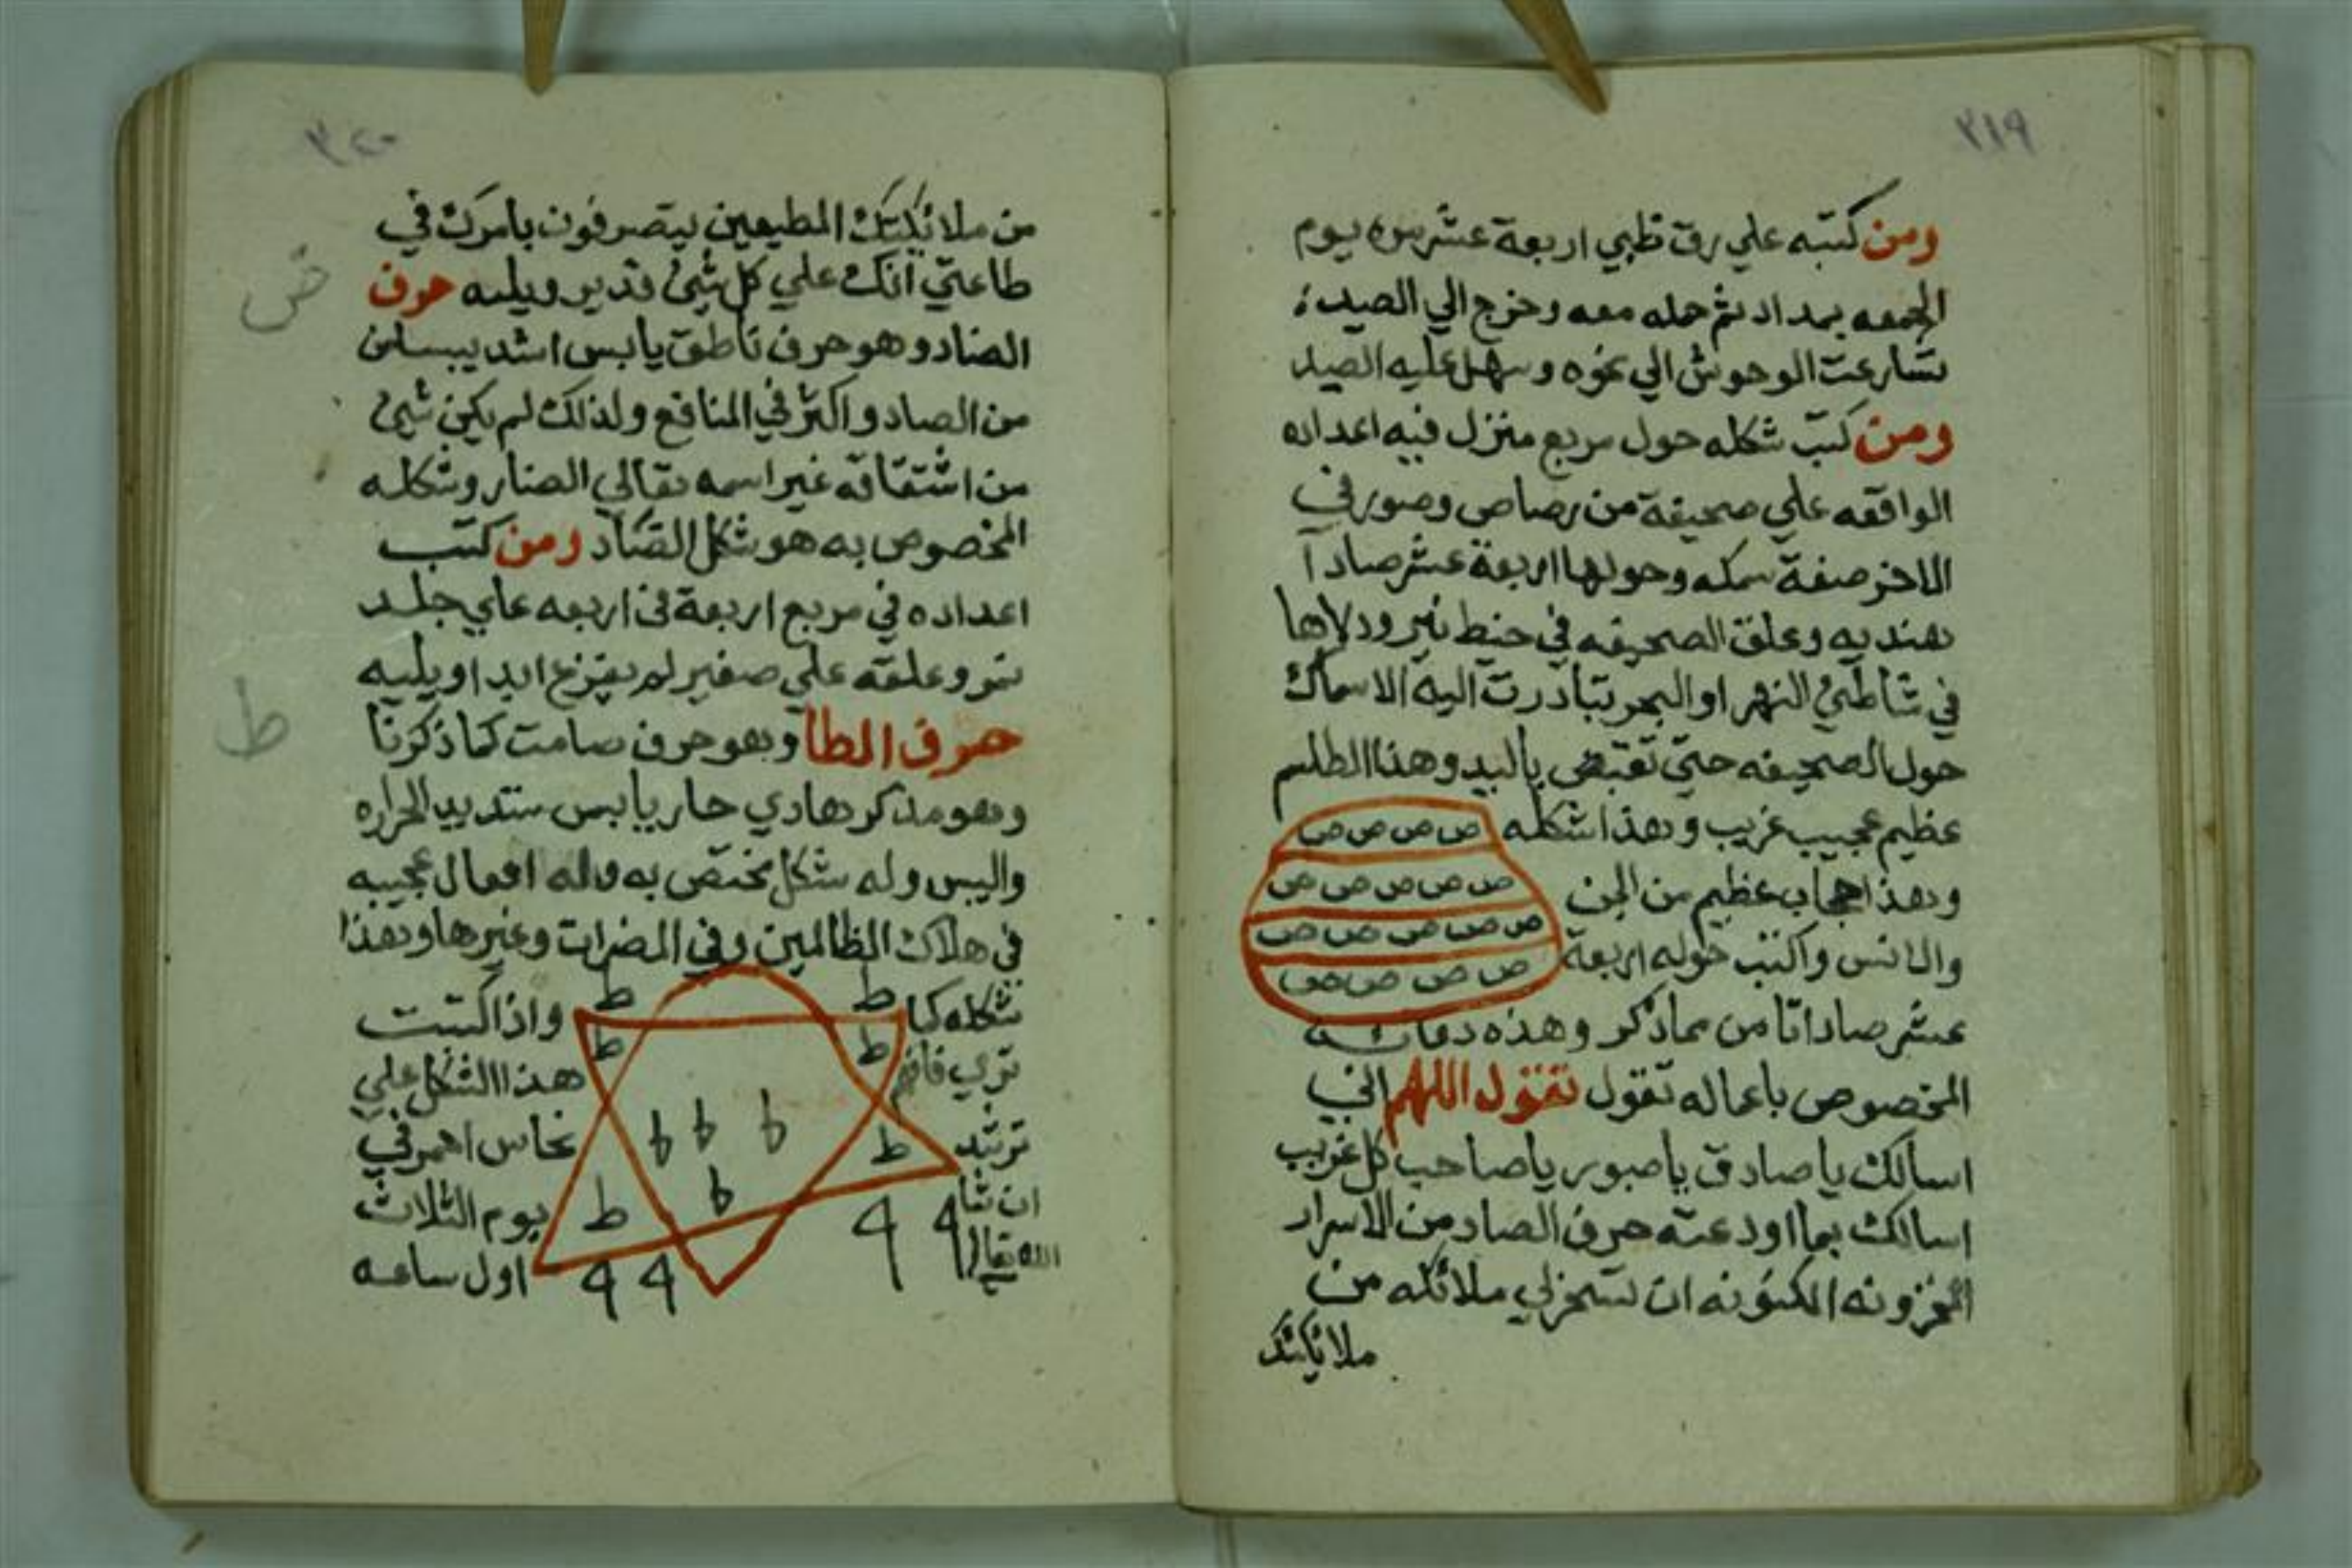 ٣١٩
ومن كتبه علي رق ظبي اربعة عشر مره يوم
الجمعه بمداد ثم حمله معه وخرج الي الصيد
تسارعت الوحوش الي نحوه وسهل عليه الصيد
ومن كتب شكله حول مربع منزل فيه اعداده
الواقعه علي صحيفة من رصاص وصور في
الاخر صفة سمكه وحولها اربعة عشر صادا
هنديه وعلق الصحيفه في خيط نير ودلاها
في شاطئ النهر او البحر تبادرت اليه الاسماك
حول الصحيفه حتي تقبض باليد وهذا الطلسم
عظيم عجيب غريب وهذا شكله
ص ص ص ص
ص ص ص ص ص
ص ص ص ص ص
ص ص ص ص
وهذا حجاب عظيم من الجن
والانس واكتب حوله اربعة
عشر صادا من ماذكر وهذه دعاته
المخصوص باعماله تقول تقول اللهم اني
اسالك يا صادق يا صبور يا صاحب كل غريب
اسالك بما اودعته حرف الصاد من الاسرار
المخزونه المكنونه ان تسخرلي ملائكه من
ملائكتك
٣٢٠
من ملائكتك المطيعين يتصرفون بامرك في
طاعتي انك علي كل شئ قدير ويليه حرف
ض
الضاد وهو حرف ناطق يابس اشد يبسا من
من الصاد واكثر في المنافع ولذلك لم يكن شئ
من اشتقاقه غير اسمه تعالي الضار وشكله
المخصوص به هو شكل الصاد ومن كتب
اعداده في مربع اربعة في اربعه علي جلد
نمر وعلقه علي صغير لم يفزع ابدا ويليه
ط
حرف الطا وهو حرف صامت كما ذكرنا
وهو مذكر هادي حار يابس شديد الحراره
واليبس وله شكل مختص به وله افعال عجيبه
في هلاك الظالمين وفي المضرات وغيرها وهذا
شكله كما
تري فافهم
ترشد
ان شا
الله تعالي
ط ط
ط ط
ط ط ط ط
ط ط
٩ ٩ ٩ ٩
واذا كتبت
هذا الشكل علي
نحاس احمر في
يوم الثلاث
اول ساعه